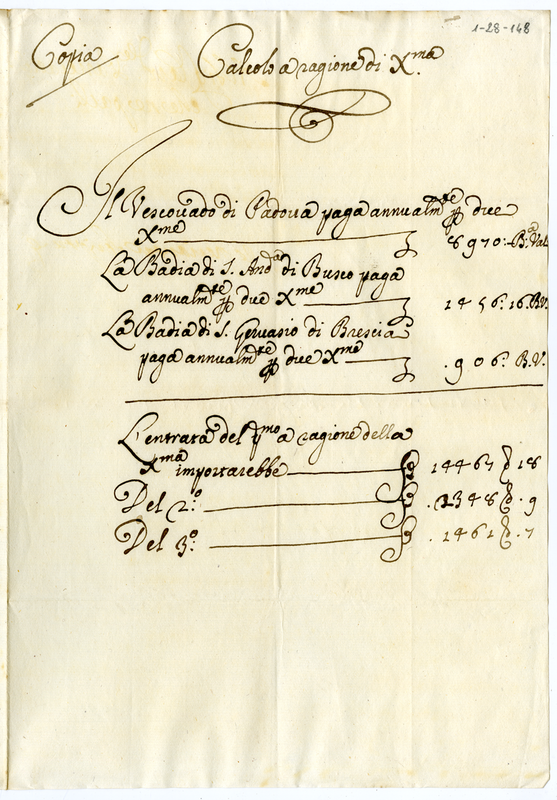 1-28-148
Copia
Calcolo a ragione di Xma
Il Vescovado di Padova paga annualmte p due
Xme 8970:- Ba Val
La Badia di S. Anda di Busco paga
annualmte p due Xme 1456:16. B.V.
La Badia di S. Gervasio di Brescia
paga annualmte p due Xme 906: B.V.
L'entrata del pmo a ragione della
Xma importarebbe 14467 18
Del 2o 2348 . 9
Del 3o 1461 . 7